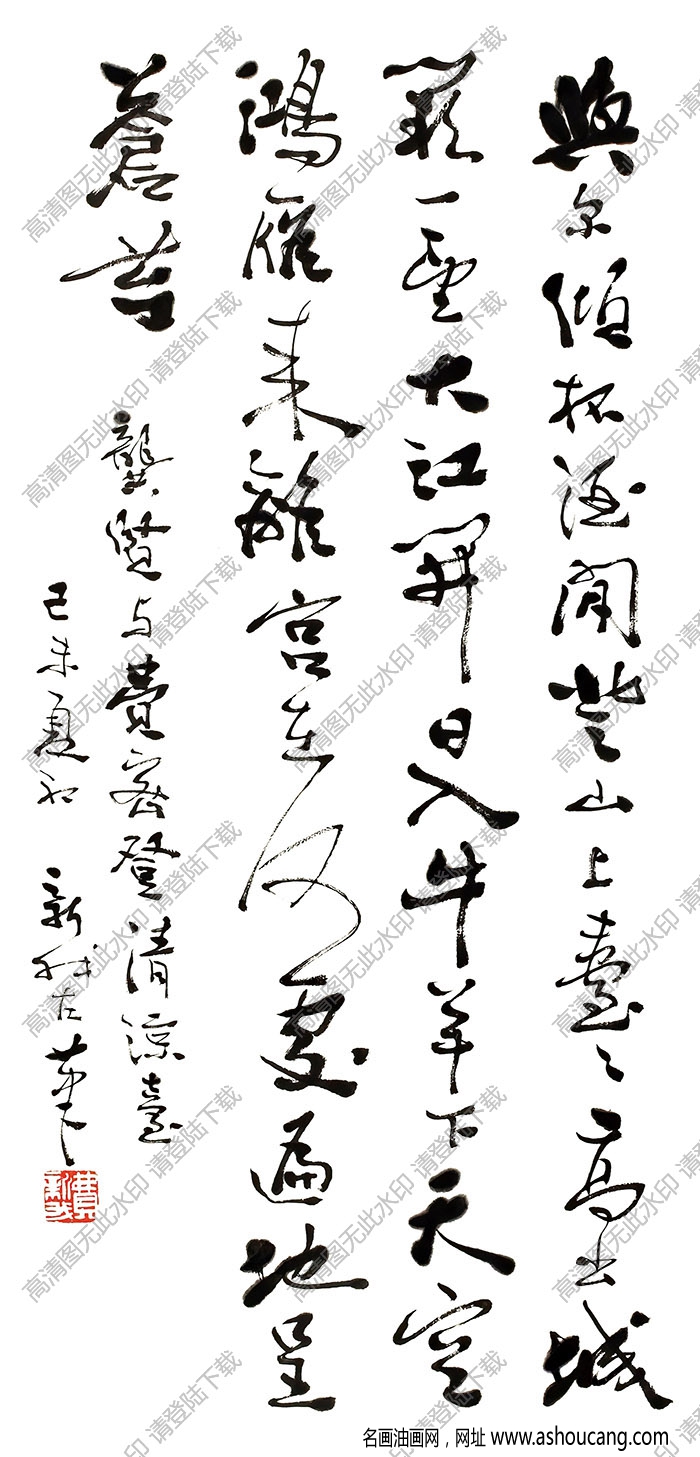 與尔傾杯酒閒登山上臺々高出城
闕一望大江開日入牛羊下天空
鴻雁来離宮在何處遍地呈
蒼苔
龔賢与費密登清涼臺
己未夏初 新我左筆
費新我
高清图无此水印 请登陆下载
名画油画网，网址 www.ashoucang.com